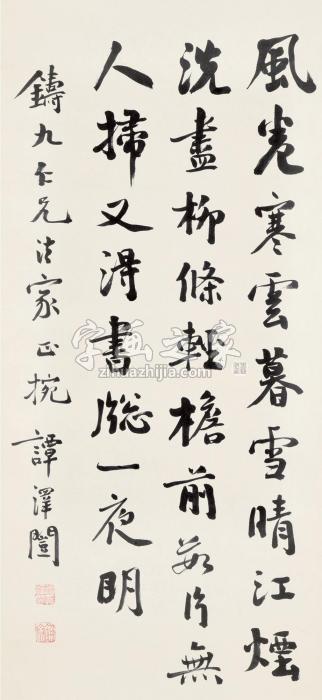 風卷寒雲暮雪晴江煙
洗盡柳條輕檐前數片無
人掃又得書牕一夜明
鑄九仁兄法家正捥 譚澤闓
字画之家
zihuazhijia.com